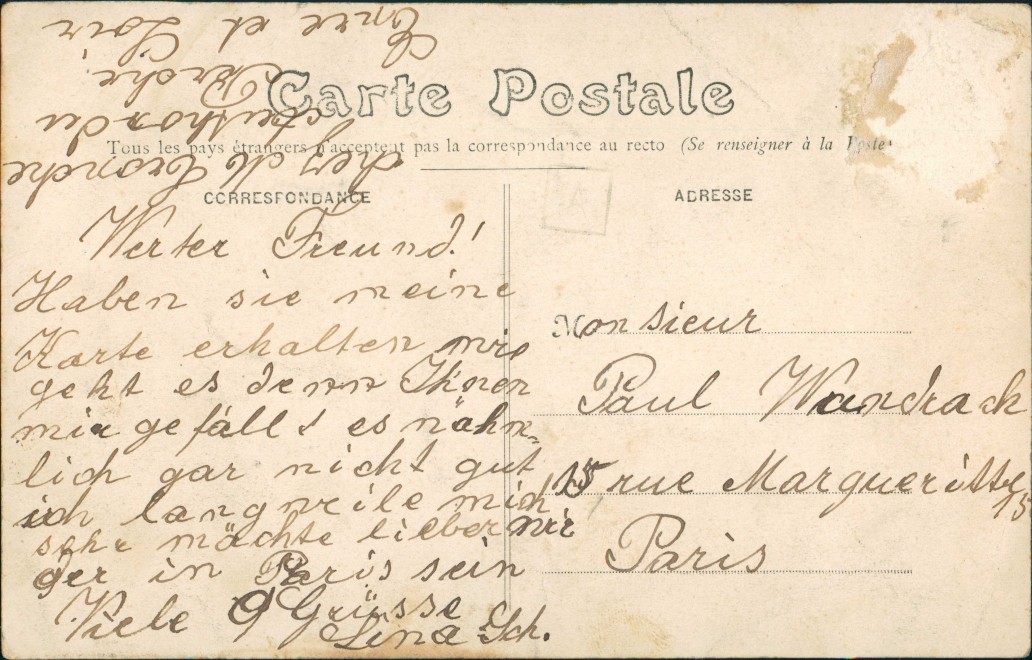 Carte Postale
Tous les pays étrangers n'acceptent pas la correspondance au recto (Se renseigner à la Poste
CORRESPONDANCE
Werter Freund!
Haben sie meine
Karte erhalten wie
geht es denn Ihnen
mir gefällt es nähm-
lich gar nicht gut
ich langweile mich
sehr mächte lieber wie
der in Paris sein
Viele Grüsse
Lina Sch.
chez M Tronche
Authon du
Perche
Eure et Loir
ADRESSE
Monsieur
Paul Wandrack
15 rue Margueritte
15
Paris